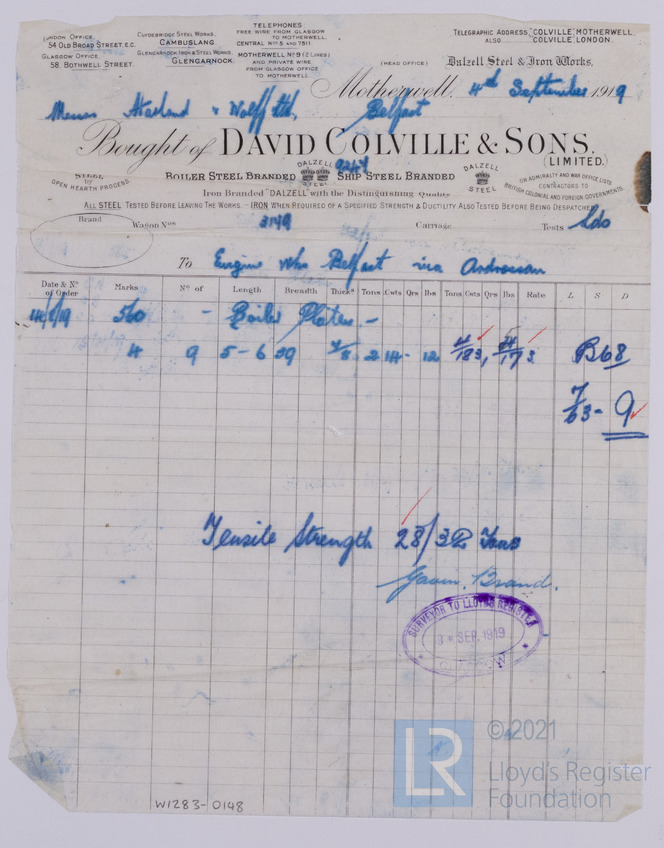 LONDON OFFICE,
54 OLD BROAD STREET. E.C.
GLASGOW OFFICE,
58. BOTHWELL STREET.
CLYDEBRIDGE STEEL WORKS,
CAMBUSLANG
GLENGARNOCK IRON & STEEL WORKS,
GLENGARNOCK.
TELEPHONES
FREE WIRE FROM GLASGOW
TO MOTHERWELL.
CENTRAL Nos 5 AND 7511
MOTHERWELL No 9 (2 LINES)
AND PRIVATE WIRE
FROM GLASGOW OFFICE
TO MOTHERWELL.
TELEGRAPHIC ADDRESS, COLVILLE MOTHERWELL.
ALSO COLVILLE LONDON.
(HEAD OFFICE) Dalzell Steel & Iron Works,
Motherwell, 4th September 1919
Messrs Harland & Wolff Ltd, Belfast
Bought of DAVID COLVILLE & SONS.
(LIMITED.)
STEEL
by
OPEN HEARTH PROCESS
BOILER STEEL BRANDED DALZELL STEEL SHIP STEEL BRANDED DALZELL STEEL
ON ADMIRALTY AND WAR OFFICE LISTS
CONTRACTORS TO
BRITISH, COLONIAL AND FOREIGN GOVERNMENTS.
Iron Branded "DALZELL" with the Distinguishing Quality
ALL STEEL TESTED BEFORE LEAVING THE WORKS. - IRON WHEN REQUIRED OF A SPECIFIED STRENGTH & DUCTILITY ALSO TESTED BEFORE BEING DESPATCHED
Brand Wagon Nos 3149 Carriage Tests Lds
To Engine Wks Belfast via Ardrossan
Date & No of Order Marks No of Length Breadth Thicks Tons Cwts Qrs lbs Tons Cwts Qrs lbs Rate L S D
560 - Boiler Plates -
4 9 5-6 39 7/8 2 14 - 12 B68
Tensile Strength 28/32 Tons
Gavin Brand.
SURVEYOR TO LLOYD'S REGISTER
SEP. 1919
GLASGOW
© 2021
LR
Lloyd's Register
Foundation
W1283-0148